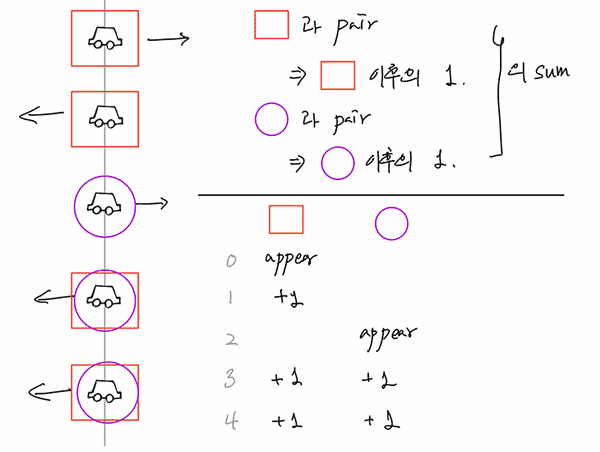 라 pair
⇒ 이후의 1.
라 pair
⇒ 이후의 1.
의 sum
0 appear
1 +1
2 appear
3 +1 +1
4 +1 +1